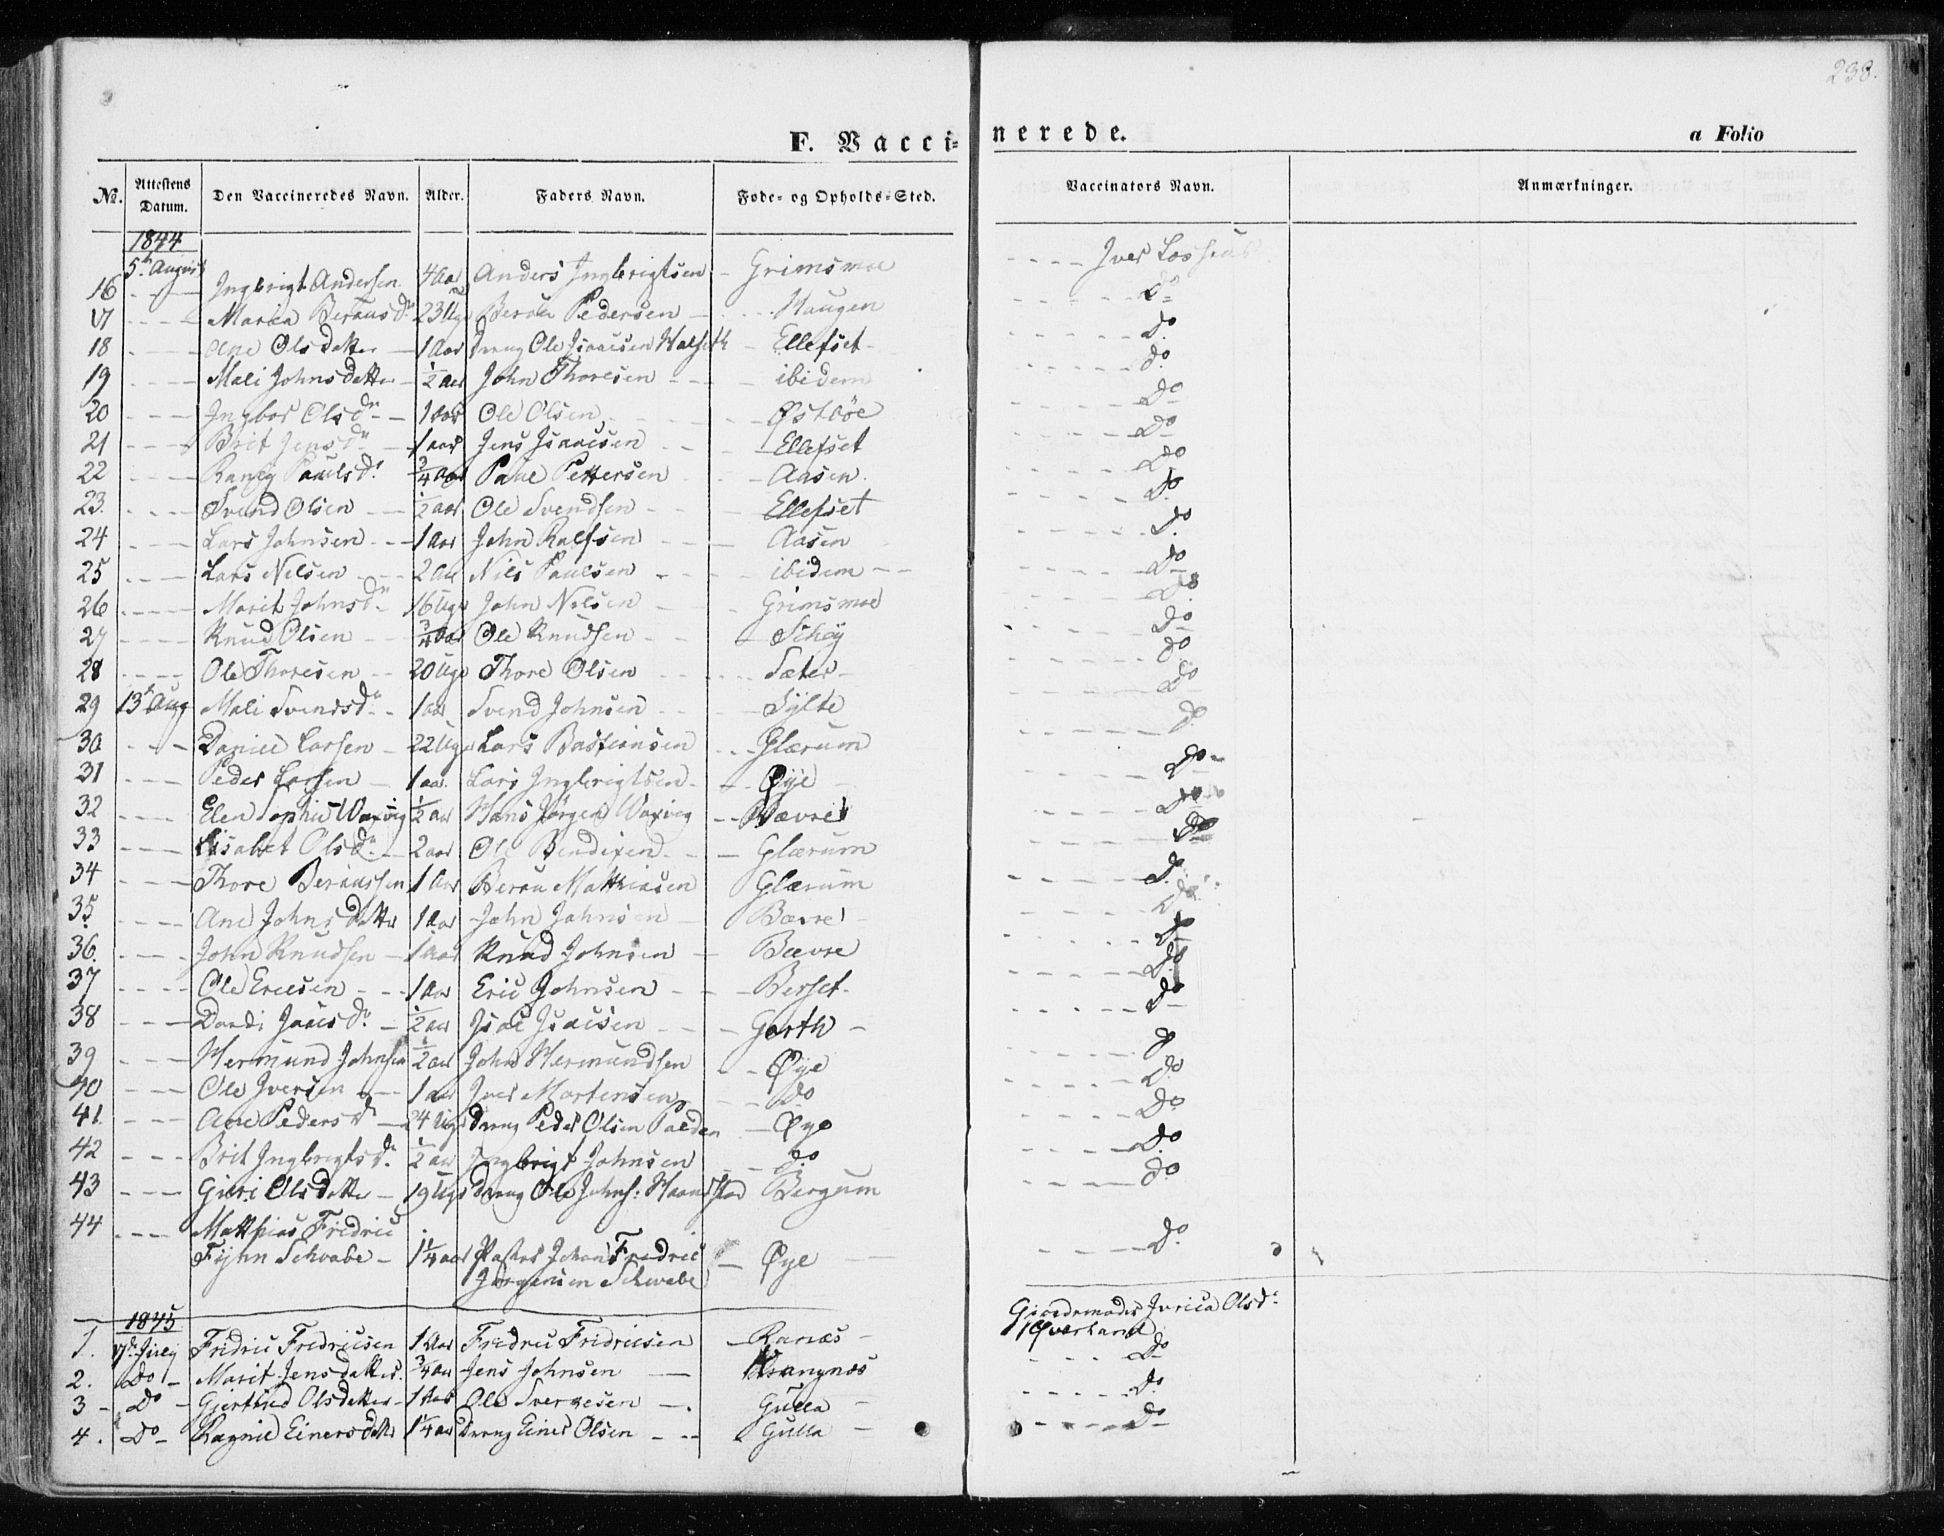 238.
F. Vaccinerede.
a Folio
No. Attestens Datum. Den Vaccineredes Navn. Alder. Faders Navn. Føde- og Opholds-Sted. Vaccinators Navn. Anmærkninger.
1844
5t August
16 Ingbrigt Andersen 4 Aar Anders Ingbrigtsen Grimsmoe Iver
17 Marea Beraus Dr 23 Uger Berau Pedersen Haugen Do
18 Ane Olsdatter 1 Aar Dreng Ole Isaacsen Halseth Ellefset Do
19 Mali Johnsdatter 1/2 aar John Thoresen ibidem Do
20 Ingbor Olsdr 1 Aar Ole Olsen Østbøe Do
21 Brit Jensdr 1 aar Jens Isaacsen Ellefset Do
22 Paulsdr 3/4 aar Paul Pettersen Aasen Do
23. Svend Olsen 1/2 aar Ole Svendsen Ellefset Do
24 Lars Johnsen 1 Aar John Rolfsen Aasen Do
25 Lars Nilsen 2 Aar Nils Paulsen ibidem Do
26 Marit Johnsdr 16 Uger John Nilsen Grimsmoe Do
27 Knud Olsen 3/4 Aar Ole Knudsen Schey Do
28 Ole Thoresen 20 Uger Thore Olsen Sæter Do
29 13t Aug Mali Svendsdr 1 aar Svend Johnsen Sylte Do
30 Daniel Larsen 22 Uger Lars Bastiansen Glærum Do
31 Peder Larsen 1 aar. Lars Ingbrigtsen Øye Do
32 Elen Sophie Waxvig 1/2 aar Hans Jørgen Waxvig Bævre Do
33 Lisabet Olsdr 2 aar Ole Bendixen Glærum Do
34 Thore Beraussen 1 Aar Berau Matthiasen Glærum Do
35 Ane Johnsdatter 1 Aar John Johnsen Bævre Do
36. John Knudsen 1 Aar Knud Johnsen Bævre Do
37 Ole Ericsen 1 Aar Eric Johnsen Berset Do
38 Dordi Isacsdr 1/2 aar Isac Isacsen Garth Do
39 Hermund Johnsen 1/2 aar John Hermundsen Øye Do
40 Ole Iversen 1 aar Iver Mortensen do Do
41. Ane Pedersdr 24 Uger Dreng Peder Olsen Øye Do
42 Brit Ingbrigtsdr 1/2 aar Ingbrigt Johnsen do Do
43 Guri Olsdatter 19 Uger Drang Ole Johns: Bergum Do
44 Matthias Fredric
Fyhn Schwabe 1 1/4 aar Pastor Johan Fredric Øye Do
Jørgensen Schwabe
1845
1. 17de July Fridric Fredricsen 1 Aar Fredric Fridricsen Ranæs Gjordemoder Olsdr
2. Do Marit Jensdatter 3/4 aar Jens Johnsen Krangnæs Do
3 Do Gjertrud Olsdatter 1 Aar Ole Gulla Do
4. Do Ragnild Einersdatter 1 1/4 aar Drang Einer Olsen Gulla Do